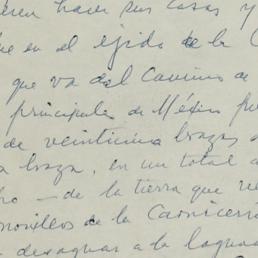 hacer sus casas y
en el ejido de la C
que va del Camino de
principales de México pu
de veinticinco brazas
braza, en un total
— de la tierra que ve
novillos de la Carnicería
desaguar a la laguna